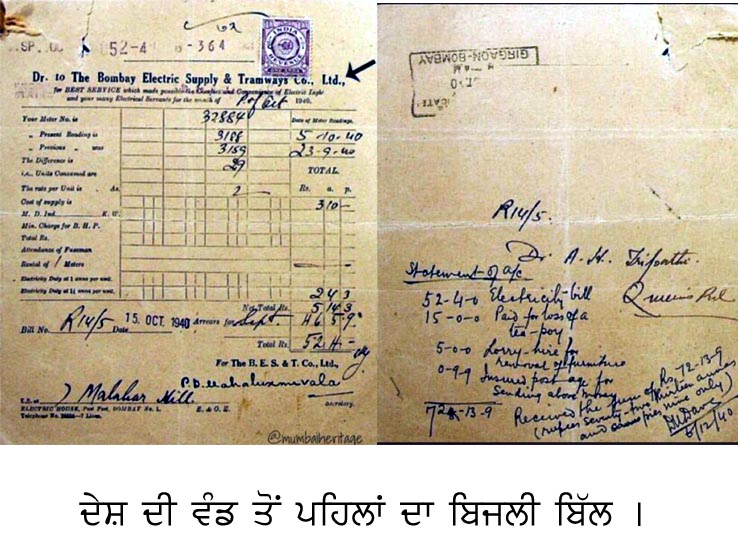 52-4
6-364
INDIA
REVENUE
ONE ANNA
Dr. to The Bombay Electric Supply & Tramways Co., Ltd.,
for BEST SERVICE which made possible the Comfort and Convenience of Electric Light
and your many Electrical Servants for the month of Oct 1940.
Your Meter No. is 32884 Date of Meter Readings.
„ Present Reading is 3188 5-10-40
„ Previous „ was 3159 23-9-40
The Difference is 29
i.e., Units Consumed are TOTAL.
The rate per Unit is As. 2 Rs. a. p.
Cost of supply is 3 10 -
M. D. Ind. K. W.
Min. Charge for B. H. P.
Total Rs.
Attendance of Fuseman
Rental of 1 Meters
Electricity Duty at 1 anna per unit.
Electricity Duty at 1½ annas per unit. 2 4 3
Net Total Rs. 5 14 3
Bill No. R14/5 Date 15 OCT. 1940 Arrears for Sept. 46 5 9
Total Rs. 52 4 -
For The B. E. S. & T. Co., Ltd.,
P.D. Mahaluxmivala
Malabar Hill
Secretary.
ELECTRIC HOUSE, Post Fort, BOMBAY No. 1. E. & O. E.
@mumbaiheritage
GIRGAON-BOMBAY
R14/5.
Dr. A. H. Tripathi.
Statement of a/c
52-4-0 Electricity-bill
15-0-0 Paid for loss of a
tea-poy
5-0-0 Lorry-hire for
removal of furniture
0-9-9 Insured postage for
sending above money
72-13-9
Received the sum of Rs 72-13-9
(rupees seventy-two thirteen annas
and pies nine only)
6/12/40
ਦੇਸ਼ ਦੀ ਵੰਡ ਤੋਂ ਪਹਿਲਾਂ ਦਾ ਬਿਜਲੀ ਬਿੱਲ ।